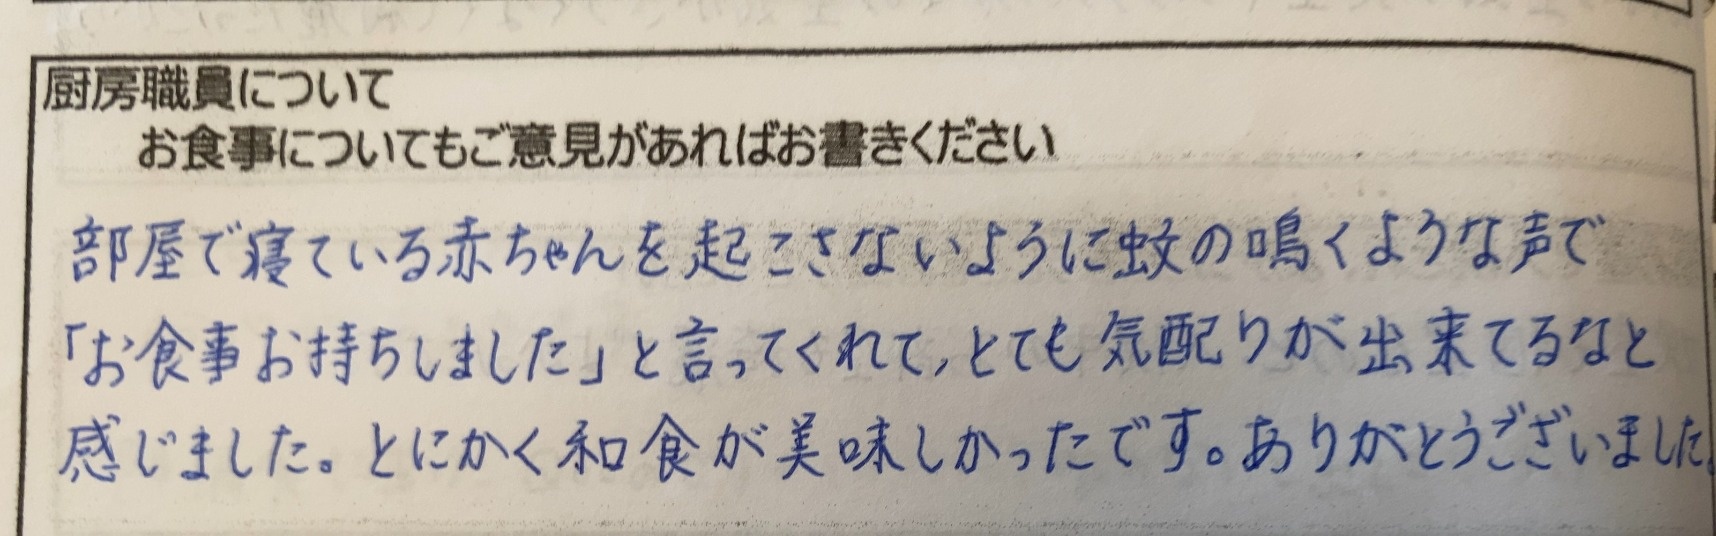 厨房職員について
お食事についてもご意見があればお書きください
部屋で寝ている赤ちゃんを起こさないように蚊の鳴くような声で
「お食事お持ちしました」と言ってくれて、とても気配りが出来てるなと
感じました。とにかく和食が美味しかったです。ありがとうございました。